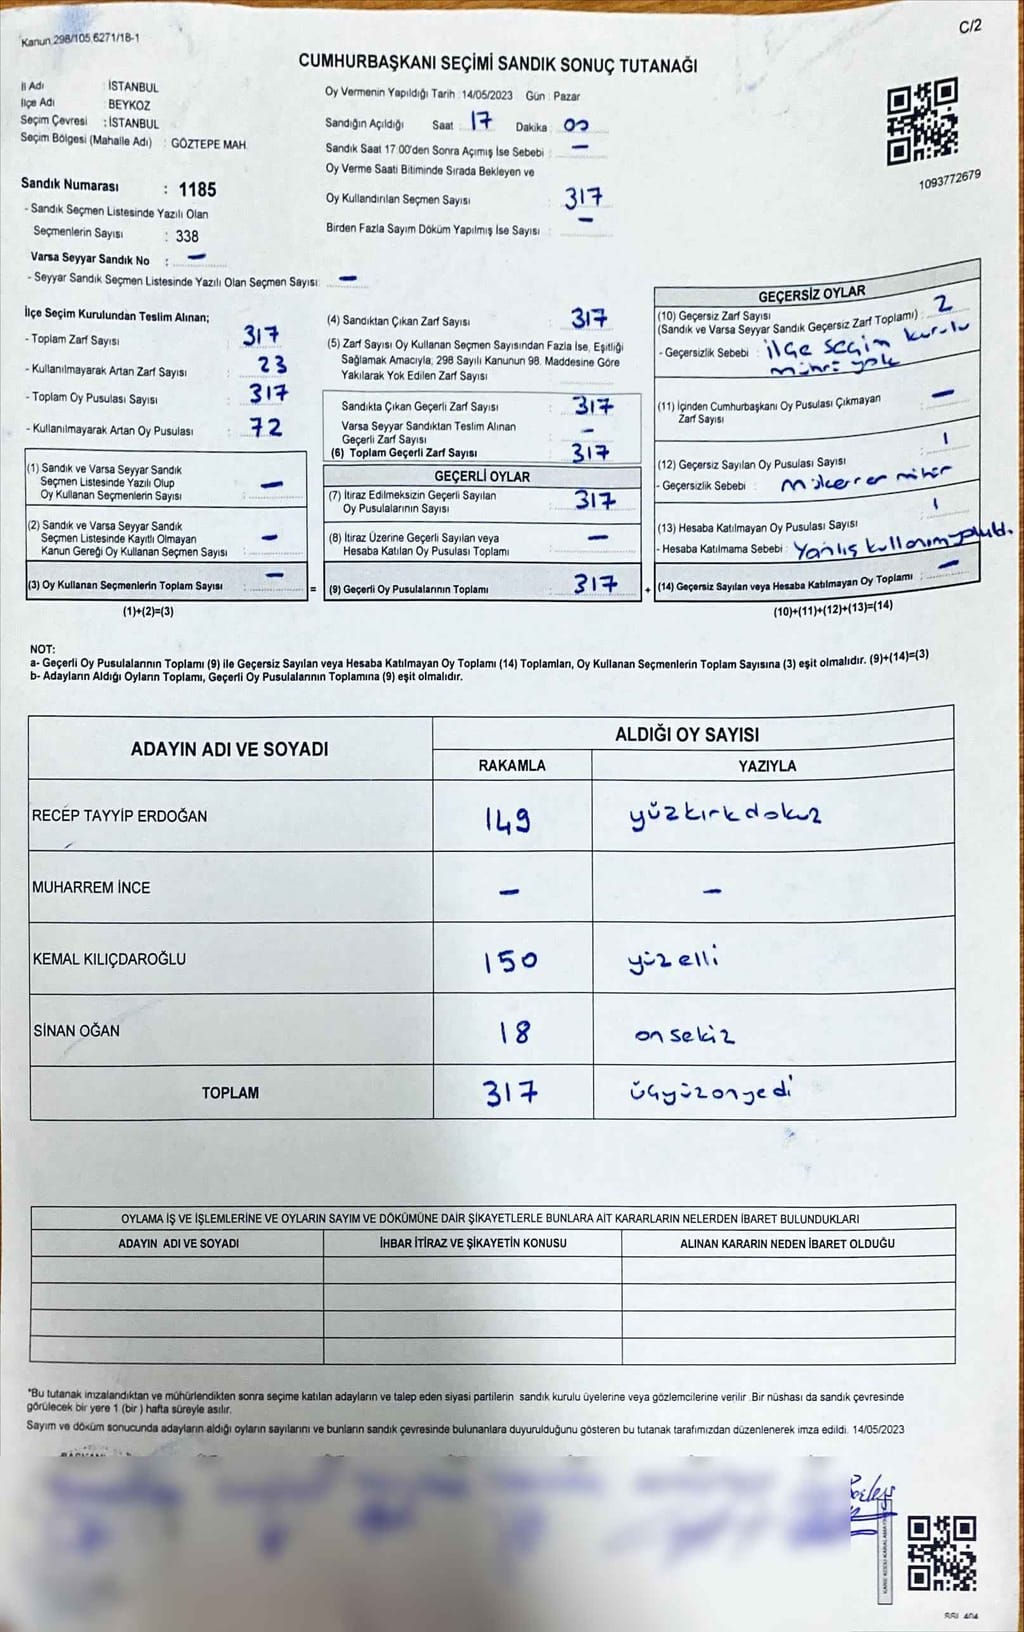 Kanun 298/105,6271/18-1
C/2
CUMHURBAŞKANI SEÇİMİ SANDIK SONUÇ TUTANAĞI
İl Adı : İSTANBUL
İlçe Adı : BEYKOZ
Seçim Çevresi : İSTANBUL
Seçim Bölgesi (Mahalle Adı) : GÖZTEPE MAH.
Sandık Numarası : 1185
- Sandık Seçmen Listesinde Yazılı Olan
Seçmenlerin Sayısı : 338
Varsa Seyyar Sandık No : –
- Seyyar Sandık Seçmen Listesinde Yazılı Olan Seçmen Sayısı: –
Oy Vermenin Yapıldığı Tarih : 14/05/2023 Gün : Pazar
Sandığın Açıldığı Saat : 17 Dakika : 00
Sandık Saat 17.00'den Sonra Açımış İse Sebebi : –
Oy Verme Saati Bitiminde Sırada Bekleyen ve
Oy Kullandırılan Seçmen Sayısı : 317
Birden Fazla Sayım Döküm Yapılmış İse Sayısı : –
1093772679
İlçe Seçim Kurulundan Teslim Alınan;
- Toplam Zarf Sayısı : 317
- Kullanılmayarak Artan Zarf Sayısı : 23
- Toplam Oy Pusulası Sayısı : 317
- Kullanılmayarak Artan Oy Pusulası : 72
(1) Sandık ve Varsa Seyyar Sandık
Seçmen Listesinde Yazılı Olup
Oy Kullanan Seçmenlerin Sayısı : –
(2) Sandık ve Varsa Seyyar Sandık
Seçmen Listesinde Kayıtlı Olmayan
Kanun Gereği Oy Kullanan Seçmen Sayısı : –
(3) Oy Kullanan Seçmenlerin Toplam Sayısı : –
(1)+(2)=(3)
(4) Sandıktan Çıkan Zarf Sayısı : 317
(5) Zarf Sayısı Oy Kullanan Seçmen Sayısından Fazla İse, Eşitliği
Sağlamak Amacıyla; 298 Sayılı Kanunun 98. Maddesine Göre
Yakılarak Yok Edilen Zarf Sayısı :
Sandıkta Çıkan Geçerli Zarf Sayısı : 317
Varsa Seyyar Sandıktan Teslim Alınan
Geçerli Zarf Sayısı : –
(6) Toplam Geçerli Zarf Sayısı : 317
GEÇERLİ OYLAR
(7) İtiraz Edilmeksizin Geçerli Sayılan
Oy Pusulalarının Sayısı : 317
(8) İtiraz Üzerine Geçerli Sayılan veya
Hesaba Katılan Oy Pusulası Toplamı : –
= (9) Geçerli Oy Pusulalarının Toplamı : 317 +
GEÇERSİZ OYLAR
(10) Geçersiz Zarf Sayısı : 2
(Sandık ve Varsa Seyyar Sandık Geçersiz Zarf Toplamı)
- Geçersizlik Sebebi : ilçe seçim kurulu
mührü yok
(11) İçinden Cumhurbaşkanı Oy Pusulası Çıkmayan
Zarf Sayısı : –
(12) Geçersiz Sayılan Oy Pusulası Sayısı : 1
- Geçersizlik Sebebi : mükerrer mühür
(13) Hesaba Katılmayan Oy Pusulası Sayısı : 1
- Hesaba Katılmama Sebebi : Yanlış kullanım
(14) Geçersiz Sayılan veya Hesaba Katılmayan Oy Toplamı : –
(10)+(11)+(12)+(13)=(14)
NOT:
a- Geçerli Oy Pusulalarının Toplamı (9) ile Geçersiz Sayılan veya Hesaba Katılmayan Oy Toplamı (14) Toplamları, Oy Kullanan Seçmenlerin Toplam Sayısına (3) eşit olmalıdır. (9)+(14)=(3)
b- Adayların Aldığı Oyların Toplamı, Geçerli Oy Pusulalarının Toplamına (9) eşit olmalıdır.
ADAYIN ADI VE SOYADI ALDIĞI OY SAYISI
RAKAMLA YAZIYLA
RECEP TAYYİP ERDOĞAN 149 yüzkırkdokuz
MUHARREM İNCE – –
KEMAL KILIÇDAROĞLU 150 yüzelli
SİNAN OĞAN 18 onsekiz
TOPLAM 317 üçyüzonyedi
OYLAMA İŞ VE İŞLEMLERİNE VE OYLARIN SAYIM VE DÖKÜMÜNE DAİR ŞİKAYETLERLE BUNLARA AİT KARARLARIN NELERDEN İBARET BULUNDUKLARI
ADAYIN ADI VE SOYADI İHBAR İTİRAZ VE ŞİKAYETİN KONUSU ALINAN KARARIN NEDEN İBARET OLDUĞU
*Bu tutanak imzalandıktan ve mühürlendikten sonra seçime katılan adayların ve talep eden siyasi partilerin sandık kurulu üyelerine veya gözlemcilerine verilir. Bir nüshası da sandık çevresinde
görülecek bir yere 1 (bir) hafta süreyle asılır.
Sayım ve döküm sonucunda adayların aldığı oyların sayılarını ve bunların sandık çevresinde bulunanlara duyurulduğunu gösteren bu tutanak tarafımızdan düzenlenerek imza edildi. 14/05/2023